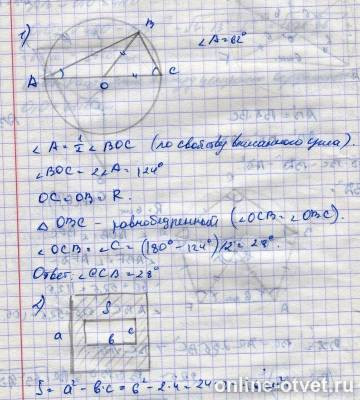 1)
B
∠A = 62°
A
O
C
∠A = ½ ∠BOC (по свойству вписанного угла).
∠BOC = 2∠A = 124°
OC = OB = R.
△ OBC – равнобедренный (∠OCB = ∠OBC).
∠OCB = ∠C = (180° – 124°)/2 = 28°.
Ответ: ∠OCB = 28°
2)
S
a
c
b
S = a² – b·c = 6² – 2·4 =
online-otvet.ru